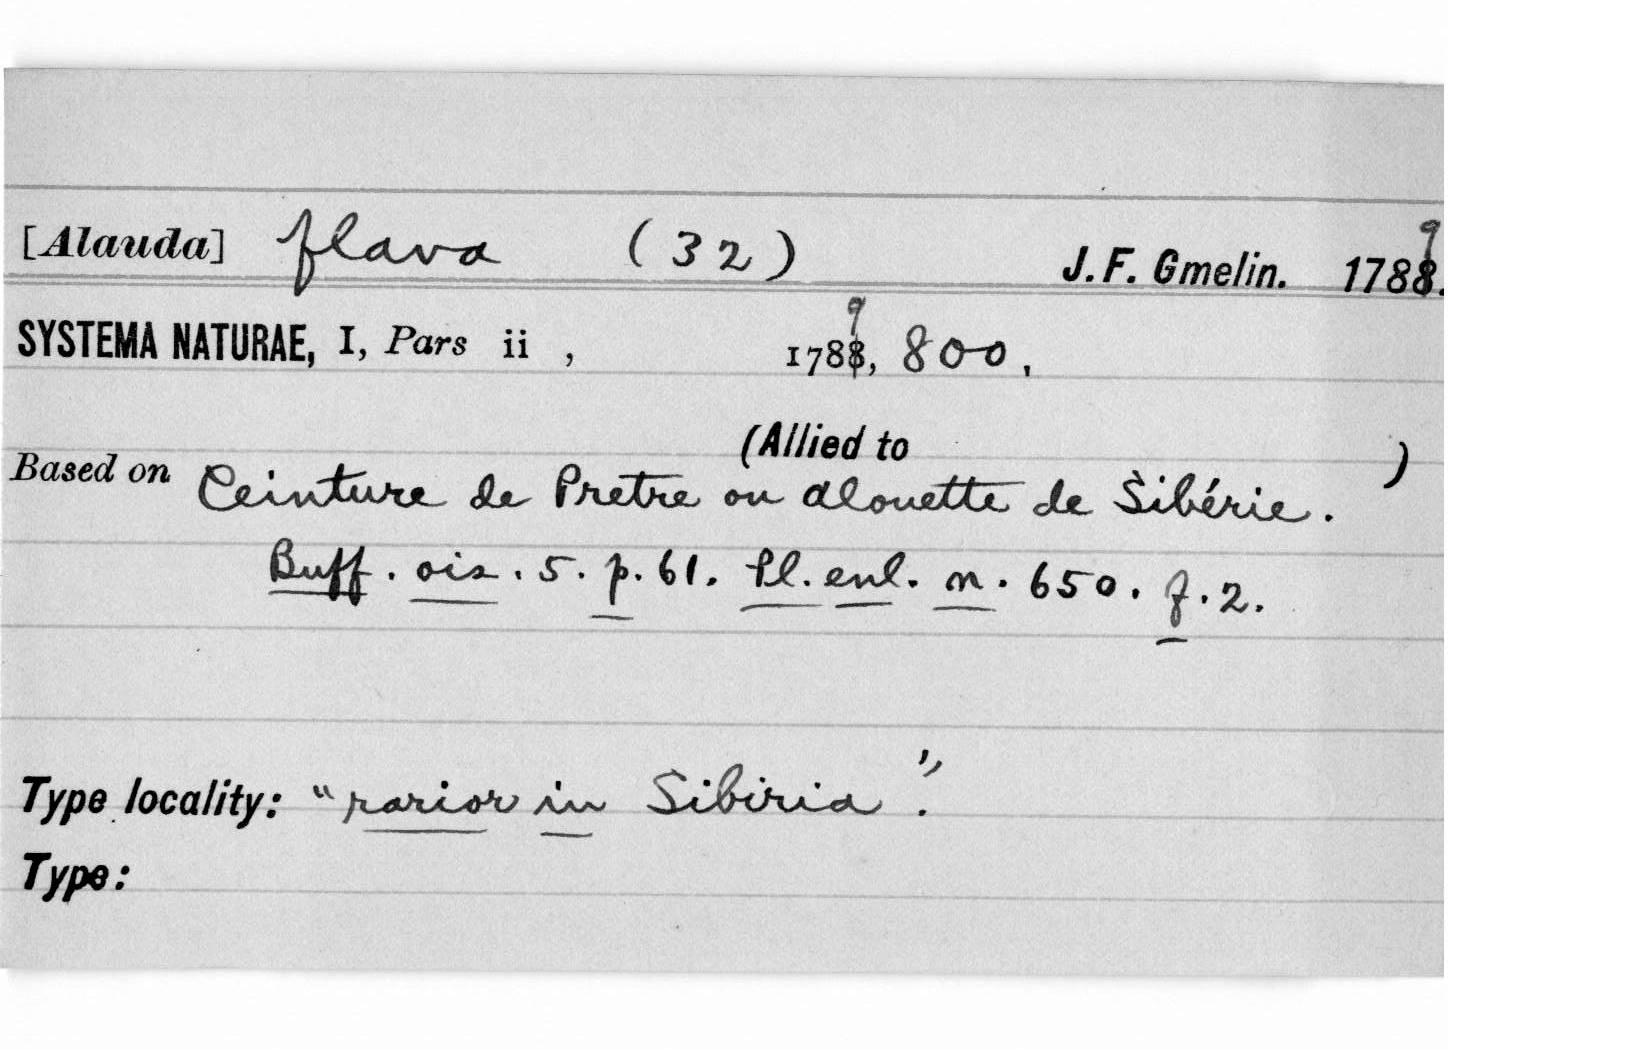 [Alauda] flava (32) J. F. Gmelin. 1789.
SYSTEMA NATURAE, I, Pars ii , 1789, 800,
(Allied to )
Based on Ceinture de Pretre ou alouette de Sibérie.
Buff. ois. 5. p. 61. Pl. enl. n. 650. f. 2.
Type locality: "rarior in Sibiria".
Type: